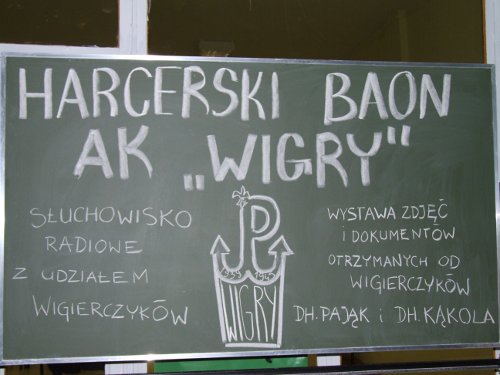 HARCERSKI BAON
AK „WIGRY"
SŁUCHOWISKO
RADIOWE
Z UDZIAŁEM
WIGIERCZYKÓW
WIGRY
WYSTAWA ZDJĘĆ
I DOKUMENTÓW
OTRZYMANYCH OD
WIGIERCZYKÓW
DH. PAJĄK i DH. KĄKOLA